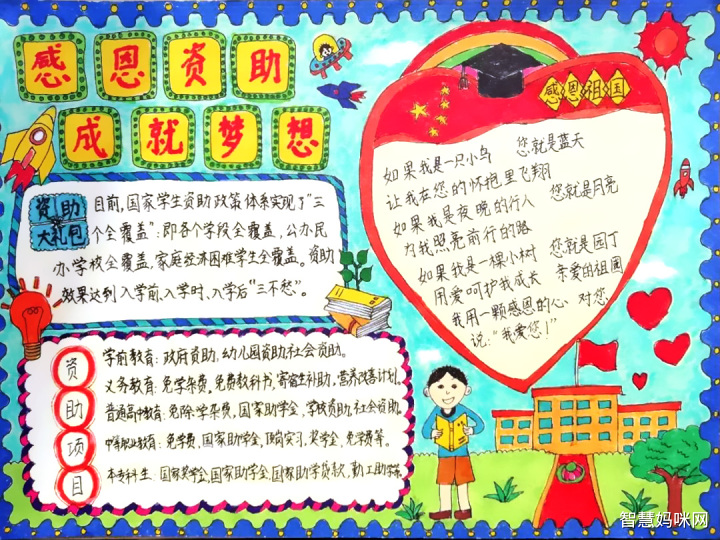 感恩资助
成就梦想
资助
大礼包
目前,国家学生资助政策体系实现了“三
个全覆盖”:即各个学段全覆盖,公办民
办学校全覆盖,家庭经济困难学生全覆盖。资助
效果达到入学前、入学时、入学后“三不愁”。
资助项目
学前教育:政府资助,幼儿园资助,社会资助。
义务教育:免学杂费,免费教科书,寄宿生补助,营养改善计划。
普通高中教育:免除学杂费,国家助学金,学校资助,社会资助。
中等职业教育:免学费,国家助学金,顶岗实习,奖学金,免学费等。
本专科生:国家奖学金,国家助学金,国家助学贷款,勤工助学等。
感恩祖国
如果我是一只小鸟 您就是蓝天
让我在您的怀抱里飞翔
如果我是夜晚的行人 您就是月亮
为我照亮前行的路
如果我是一棵小树 您就是园丁
用爱呵护我成长 亲爱的祖国
我用一颗感恩的心 对您
说:“我爱您!”
智慧妈咪网